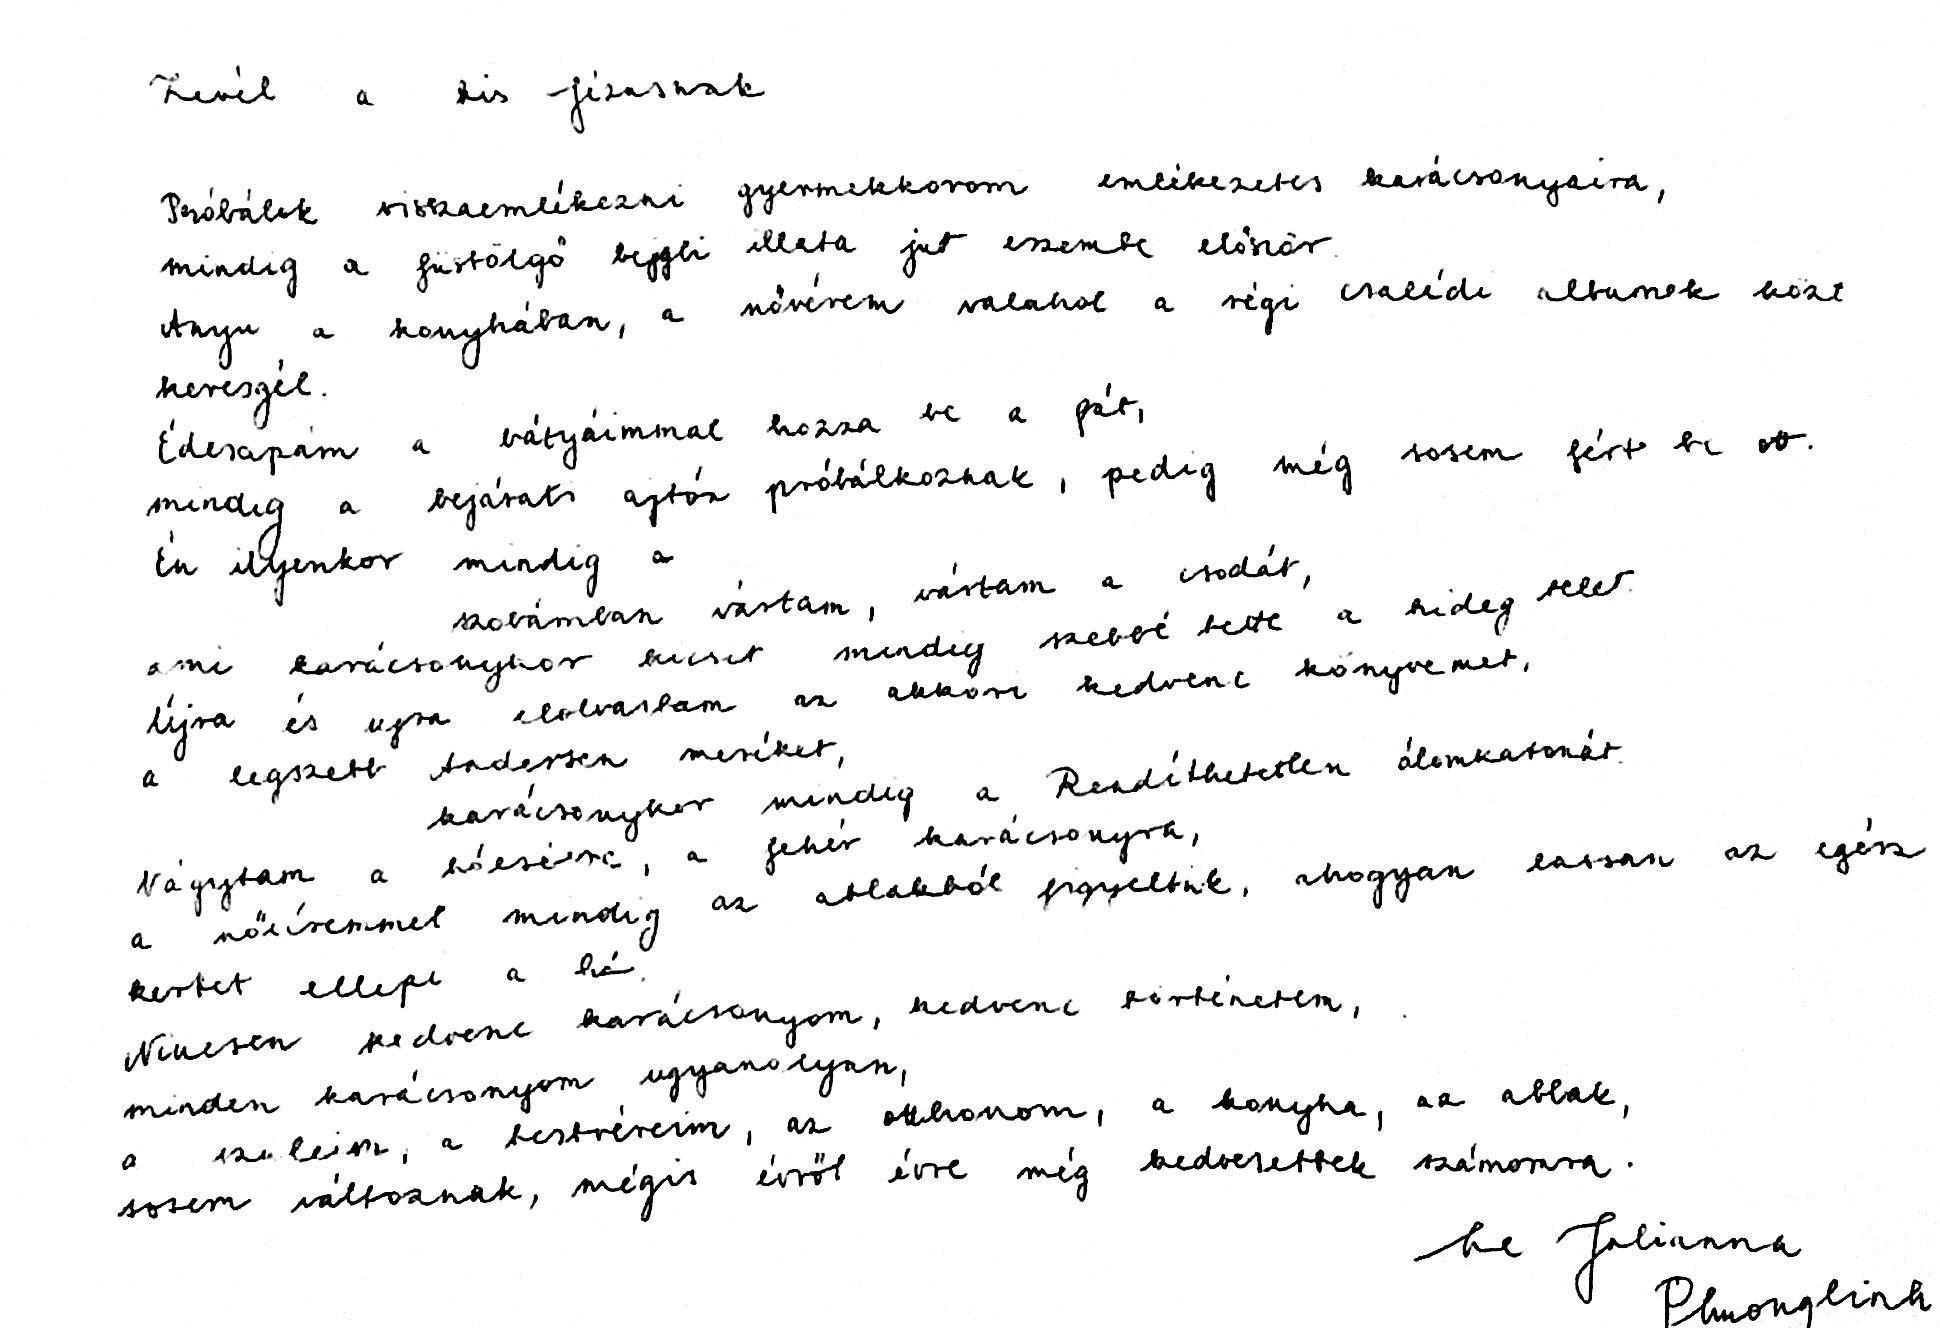 Levél a kis Jézusnak
Próbálok visszaemlékezni gyermekkorom emlékezetes karácsonyaira,
mindig a füstölgő bejgli illata jut eszembe először.
Anyu a konyhában, a nővérem valahol a régi családi albumok közt
keresgél.
Édesapám a bátyáimmal hozza be a fát,
mindig a bejárati ajtón próbálkoznak, pedig még sosem fért be ott.
Én ilyenkor mindig a
szobámban vártam, vártam a csodát,
ami karácsonykor kicsit mindig szebbé tette a hideg telet.
Újra és újra elolvastam az akkori kedvenc könyvemet,
a legszebb Andersen meséket,
karácsonykor mindig a Rendíthetetlen ólomkatonát.
Vágytam a hóesésre, a fehér karácsonyra,
a nővéremmel mindig az ablakból figyeltük, ahogyan lassan az egész
kertet ellepi a hó.
Nincsen kedvenc karácsonyom, kedvenc történetem,
minden karácsonyom ugyanolyan,
a szüleim, a testvéreim, az otthonom, a konyha, az ablak,
sosem változnak, mégis évről évre még kedvesebbek számomra.
Le Julianna
Phuonglinh